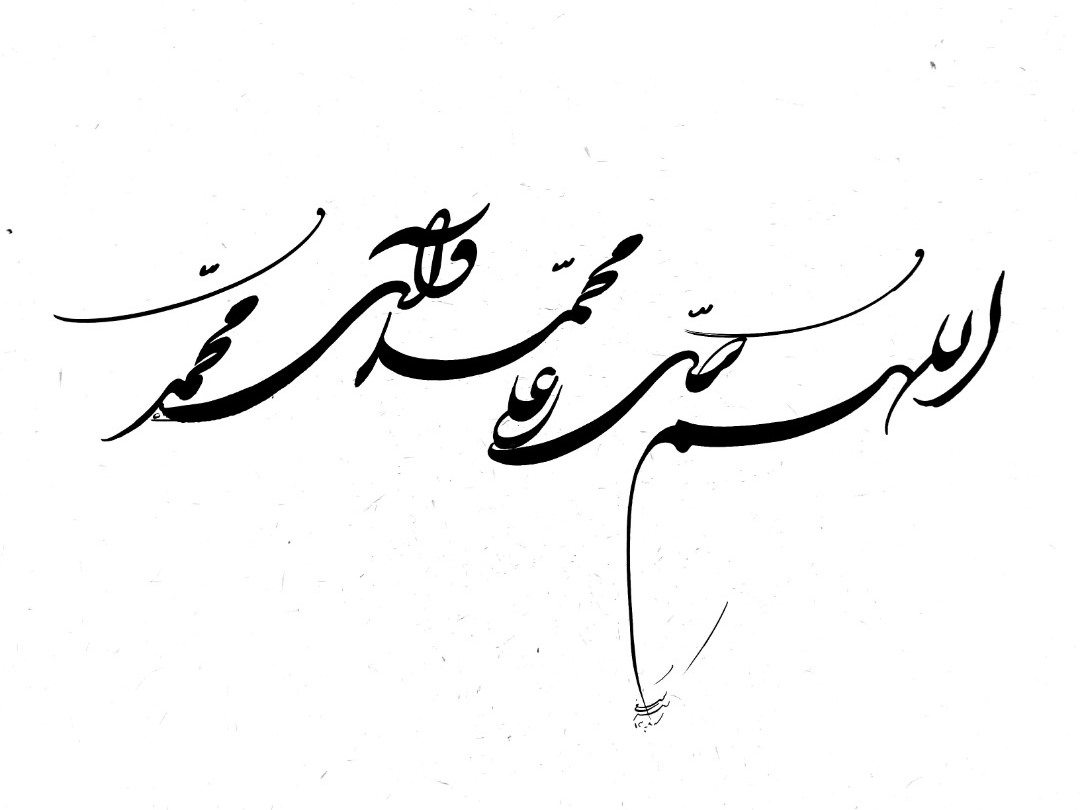 اللهم صلّ علی محمّد وآل محمّد